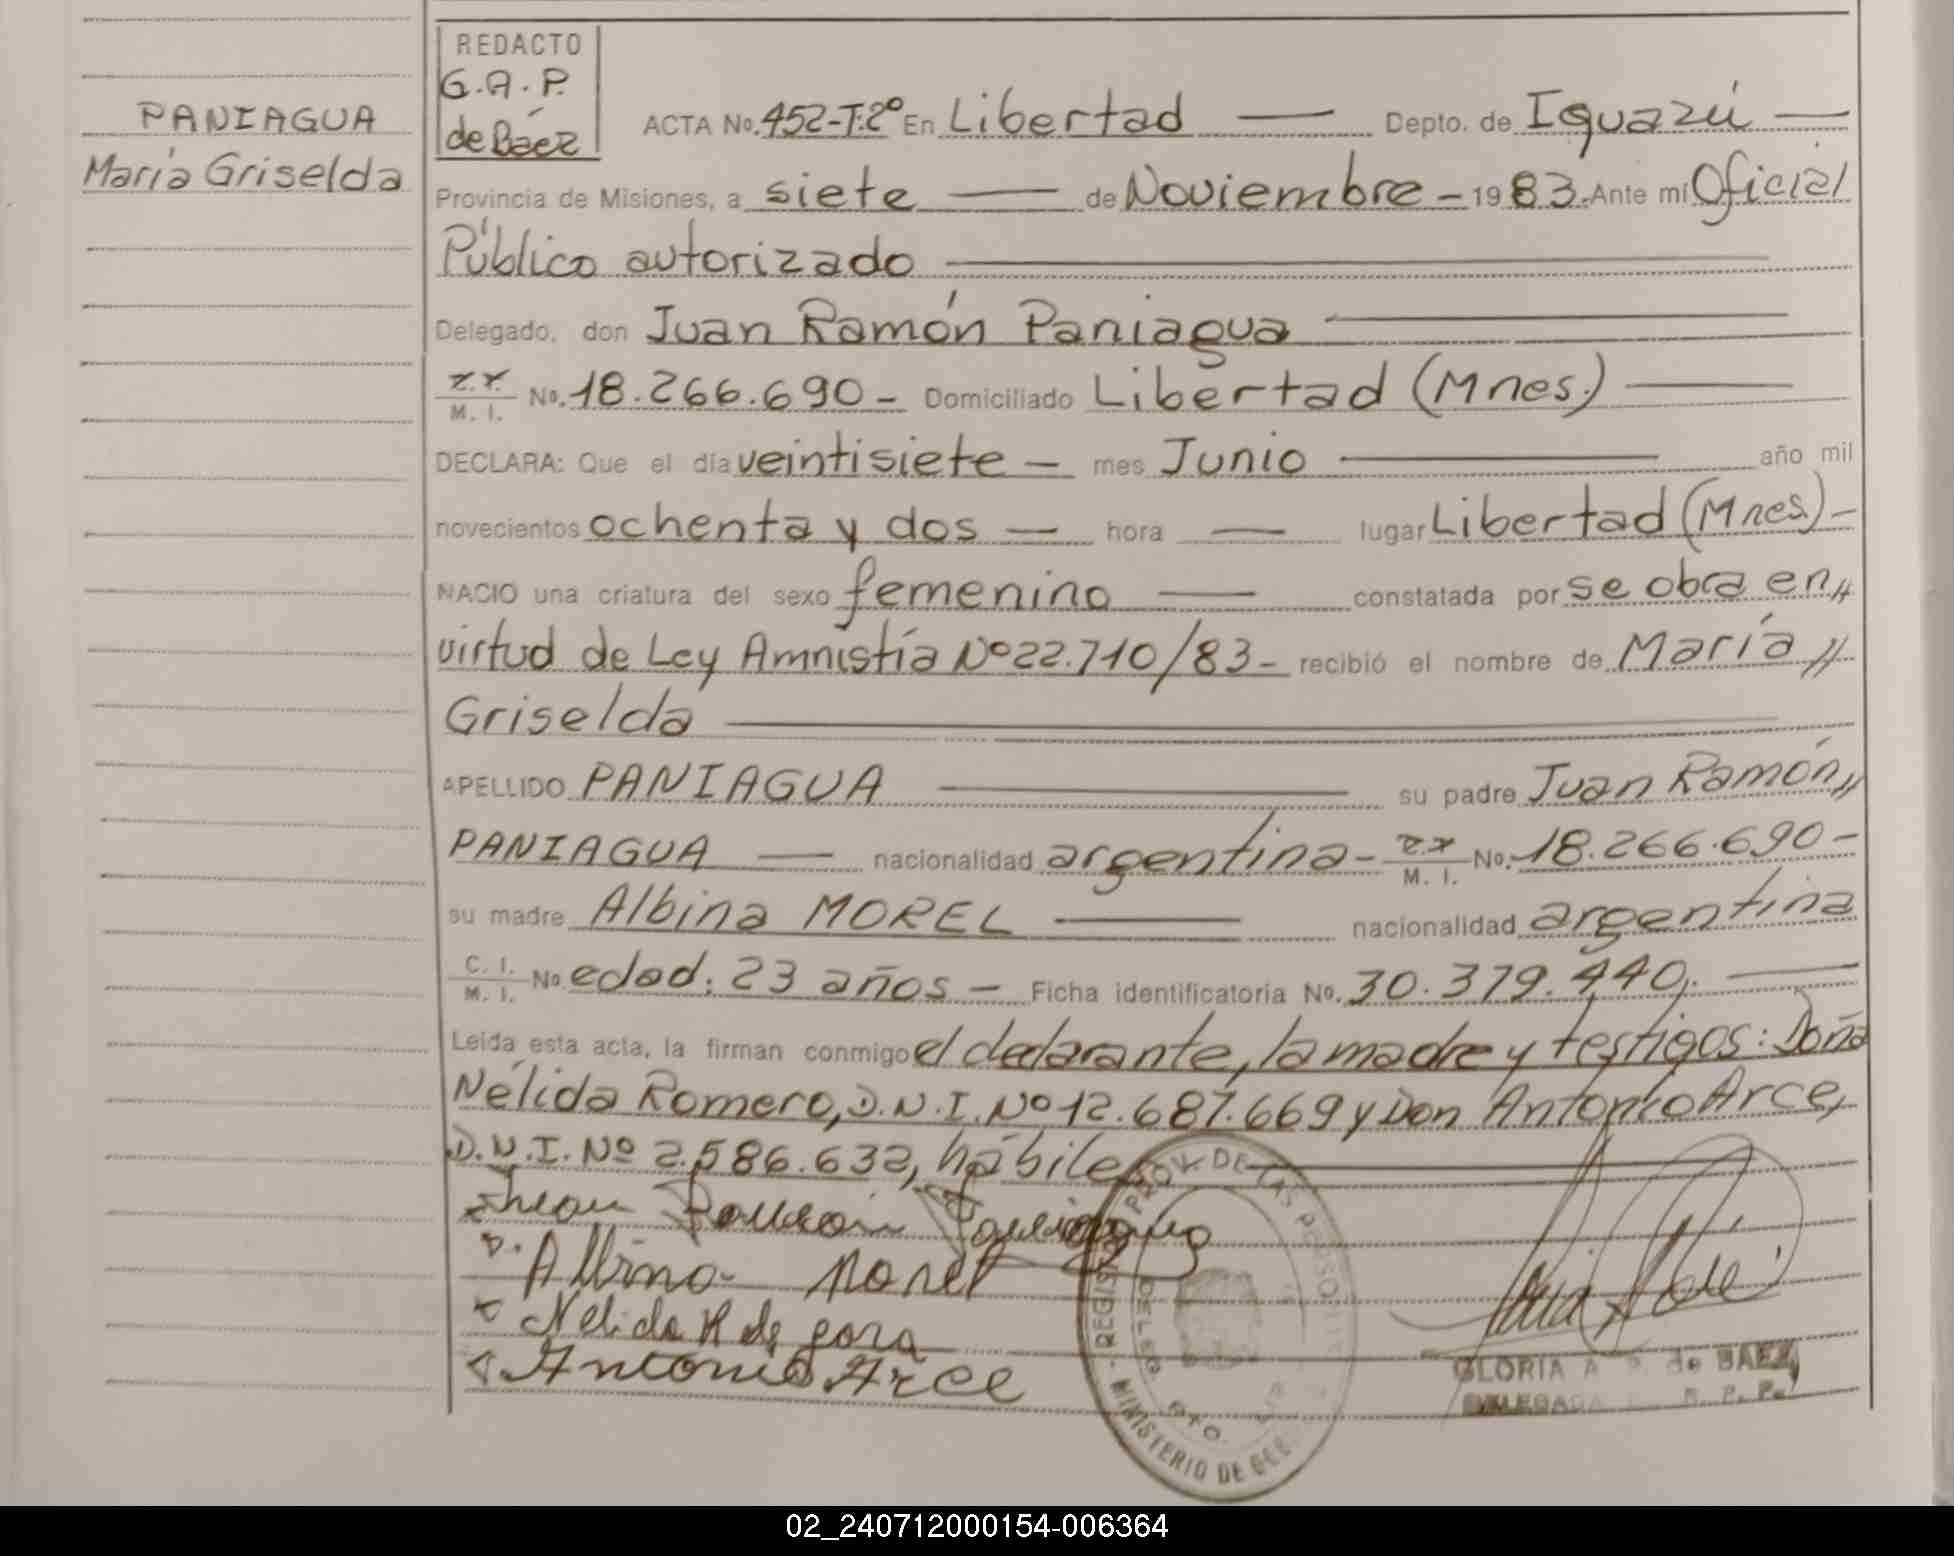 PANIAGUA
María Griselda
REDACTO
G.A.P.
de Báez
ACTA No. 452-T.2º En Libertad — Depto. de Iguazú —
Provincia de Misiones, a siete — de Noviembre - 1983. Ante mí Oficial
Público autorizado —
Delegado, don Juan Ramón Paniagua —
M. I. No. 18.266.690 - Domiciliado Libertad (Mnes.) —
DECLARA: Que el día veintisiete - mes Junio — año mil
novecientos ochenta y dos — hora — lugar Libertad (Mnes.) -
NACIO una criatura del sexo femenino — constatada por se obra en //
virtud de Ley Amnistía Nº 22.710/83 - recibió el nombre de María //
Griselda —
APELLIDO PANIAGUA — su padre Juan Ramón //
PANIAGUA — nacionalidad argentina - M. I. No. 18.266.690 -
su madre Albina MOREL — nacionalidad argentina
C. I. M. I. No. edad: 23 años - Ficha identificatoria No. 30.379.440. —
Leida esta acta, la firman conmigo el declarante, la madre y testigos: Doña
Nélida Romero, D.N.I. Nº 12.687.669 y Don Antonio Arce,
D.N.I. Nº 2.586.632, hábiles
Juan Ramon Paniagua
Albina Morel
Nelida R de
Antonio Arce
REGIST PROV. DE LAS PERSO
MINISTERIO DE GOB
DELEG
DTO.
GLORIA A. P. de BAEZ
DELEGADA R. P. P.
02_240712000154-006364